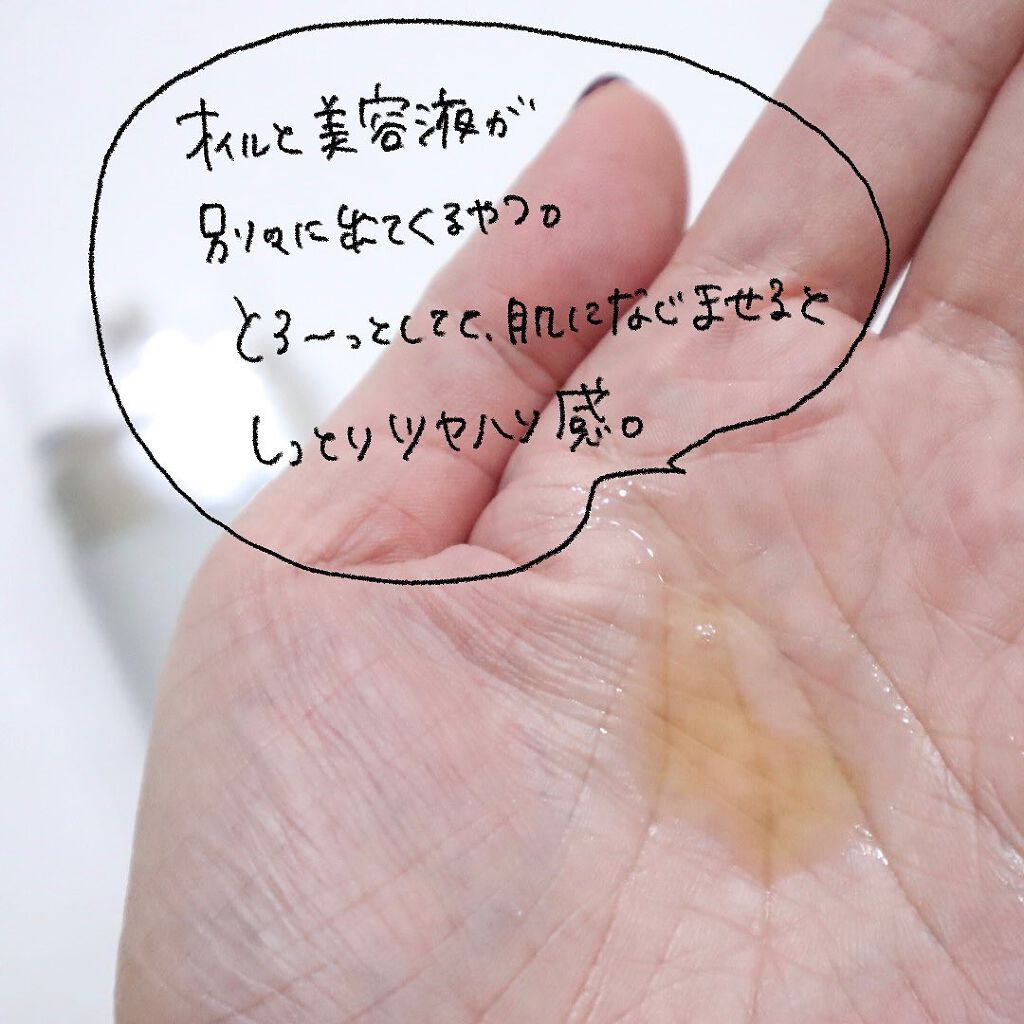 オイルと美容液が
別々に出てくるやつ。
とろ〜っとしてて、肌になじませると
しっとりツヤハリ感。